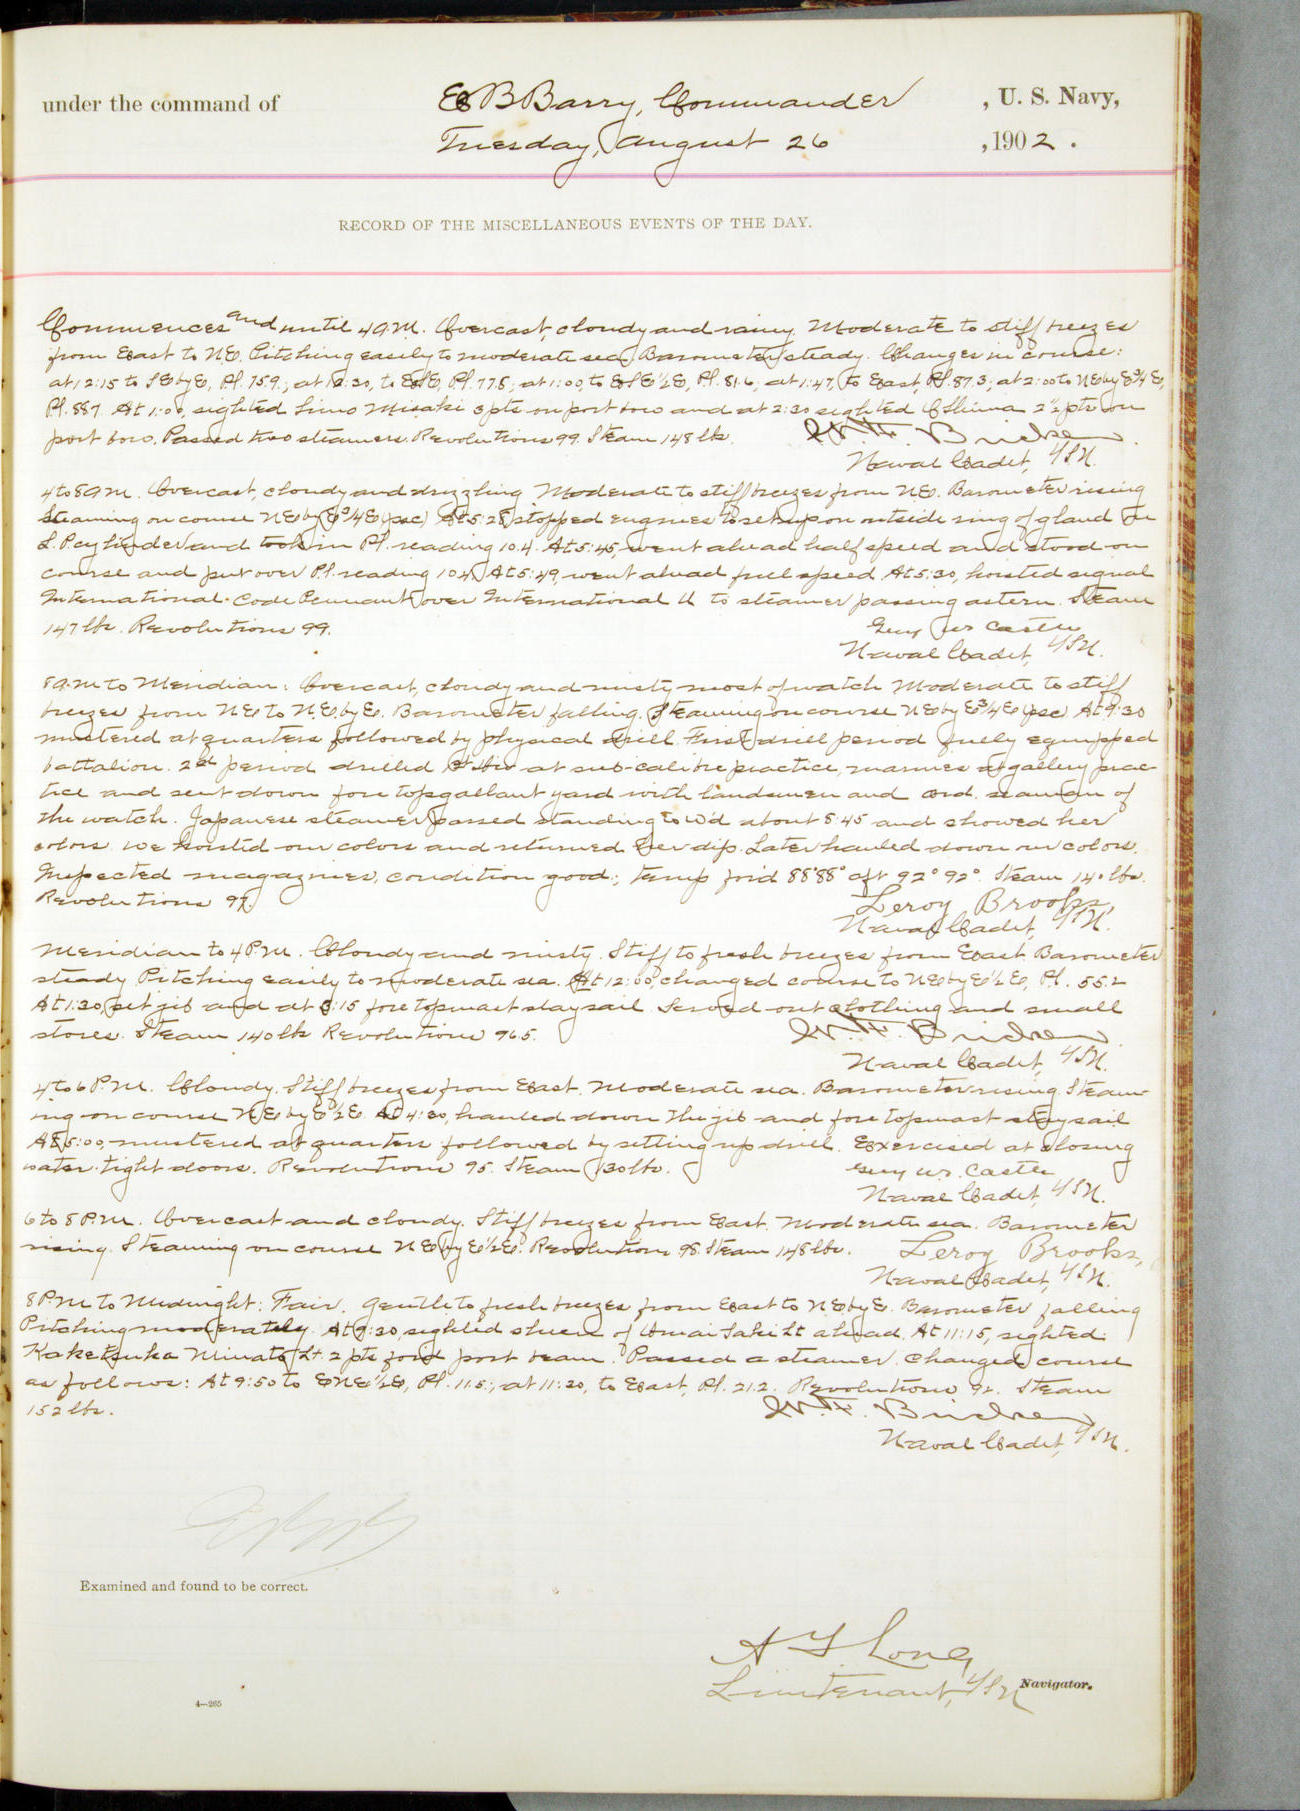 under the command of E B Barry, Commander , U. S. Navy,
Tuesday, August 26 , 1902.
RECORD OF THE MISCELLANEOUS EVENTS OF THE DAY.
Commences and until 4 A.M. Overcast, cloudy and rainy. Moderate to stiff breezes
from East to N.E. Pitching easily to moderate sea. Barometer steady. Changes in course:
at 12:15 to SE by E, Pl. 75.9; at 12:30, to ESE, Pl. 77.8; at 1:00, to ESE½E, Pl. 81.6; at 1:47, to East, Pl. 87.3; at 2:00 to NE by E¾E,
Pl. 88.7. At 1:00, sighted Siwo Misaki 3 pts on port bow and at 2:30 sighted O Shima 2½ pts on
port bow. Passed two steamers. Revolutions 99. Steam 148 lbs.
Naval Cadet, USN.
4 to 8 A.M. Overcast, cloudy and drizzling. Moderate to stiff breezes from N.E. Barometer rising
Steaming on course NE by E¾E (psc) At 5:28 stopped engines to set up on outside ring of gland on
L.P. cylinder and took in Pl. reading 10.4. At 5:45, went ahead half speed and stood on
course and put over Pl. reading 10.4. At 5:49, went ahead full speed. At 5:30, hoisted signal
International Code Pennant over International U to steamer passing astern. Steam
147 lbs. Revolutions 99.
Guy W. Castle
Naval Cadet, USN.
8 A.M. to Meridian: Overcast, cloudy and misty most of watch. Moderate to stiff
breezes from NE to N.E. by E. Barometer falling. Steaming on course NE by E¾E (psc) At 9:30
mustered at quarters followed by physical drill. First drill period fully equipped
battalion. 2nd period drilled 1st div at sub-calibre practice, marines at gallery prac-
tice and sent down fore topgallant yard with landsmen and ord. seamen of
the watch. Japanese steamer passed standing to Wd about 8:45 and showed her
colors. We hoisted our colors and returned her dip. Later hauled down our colors.
Inspected magazines, condition good; temp for'd 88° 88° aft 92° 92°. Steam 140 lbs.
Revolutions 97.
Leroy Brooks,
Naval Cadet, USN.
Meridian to 4 P.M. Cloudy and misty. Stiff to fresh breezes from East. Barometer
steady. Pitching easily to moderate sea. At 12:00, changed course to NE by E½E, Pl. 55.2
At 1:30, set jib and at 3:15 fore topmast staysail. Served out clothing and small
stores. Steam 140 lbs Revolutions 96.5.
Naval Cadet, USN.
4 to 6 P.M. Cloudy. Stiff breezes from East. Moderate sea. Barometer rising. Steam-
ing on course NE by E½E. At 4:30, hauled down the jib and fore topmast staysail
At 5:00, mustered at quarters followed by setting up drill. Exercised at closing
water-tight doors. Revolutions 95. Steam 130 lbs.
Guy W. Castle
Naval Cadet, USN.
6 to 8 P.M. Overcast and cloudy. Stiff breezes from East. Moderate sea. Barometer
rising. Steaming on course NE by E½E. Revolutions 98. Steam 148 lbs.
Leroy Brooks,
Naval Cadet, USN.
8 P.M. to Midnight: Fair. Gentle to fresh breezes from East to N.E. by E. Barometer falling
Pitching moderately. At 9:30, sighted sheen of Omai Saki Lt ahead. At 11:15, sighted
Kaketsuka Minato Lt. 2 pts for'd port beam. Passed a steamer. Changed course
as follows: At 9:50 to ENE½E, Pl. 11.5; at 11:20, to East, Pl. 21.2. Revolutions 92. Steam
152 lbs.
Naval Cadet, USN.
Examined and found to be correct.
A T Long
Lieutenant, USN Navigator.
4—265